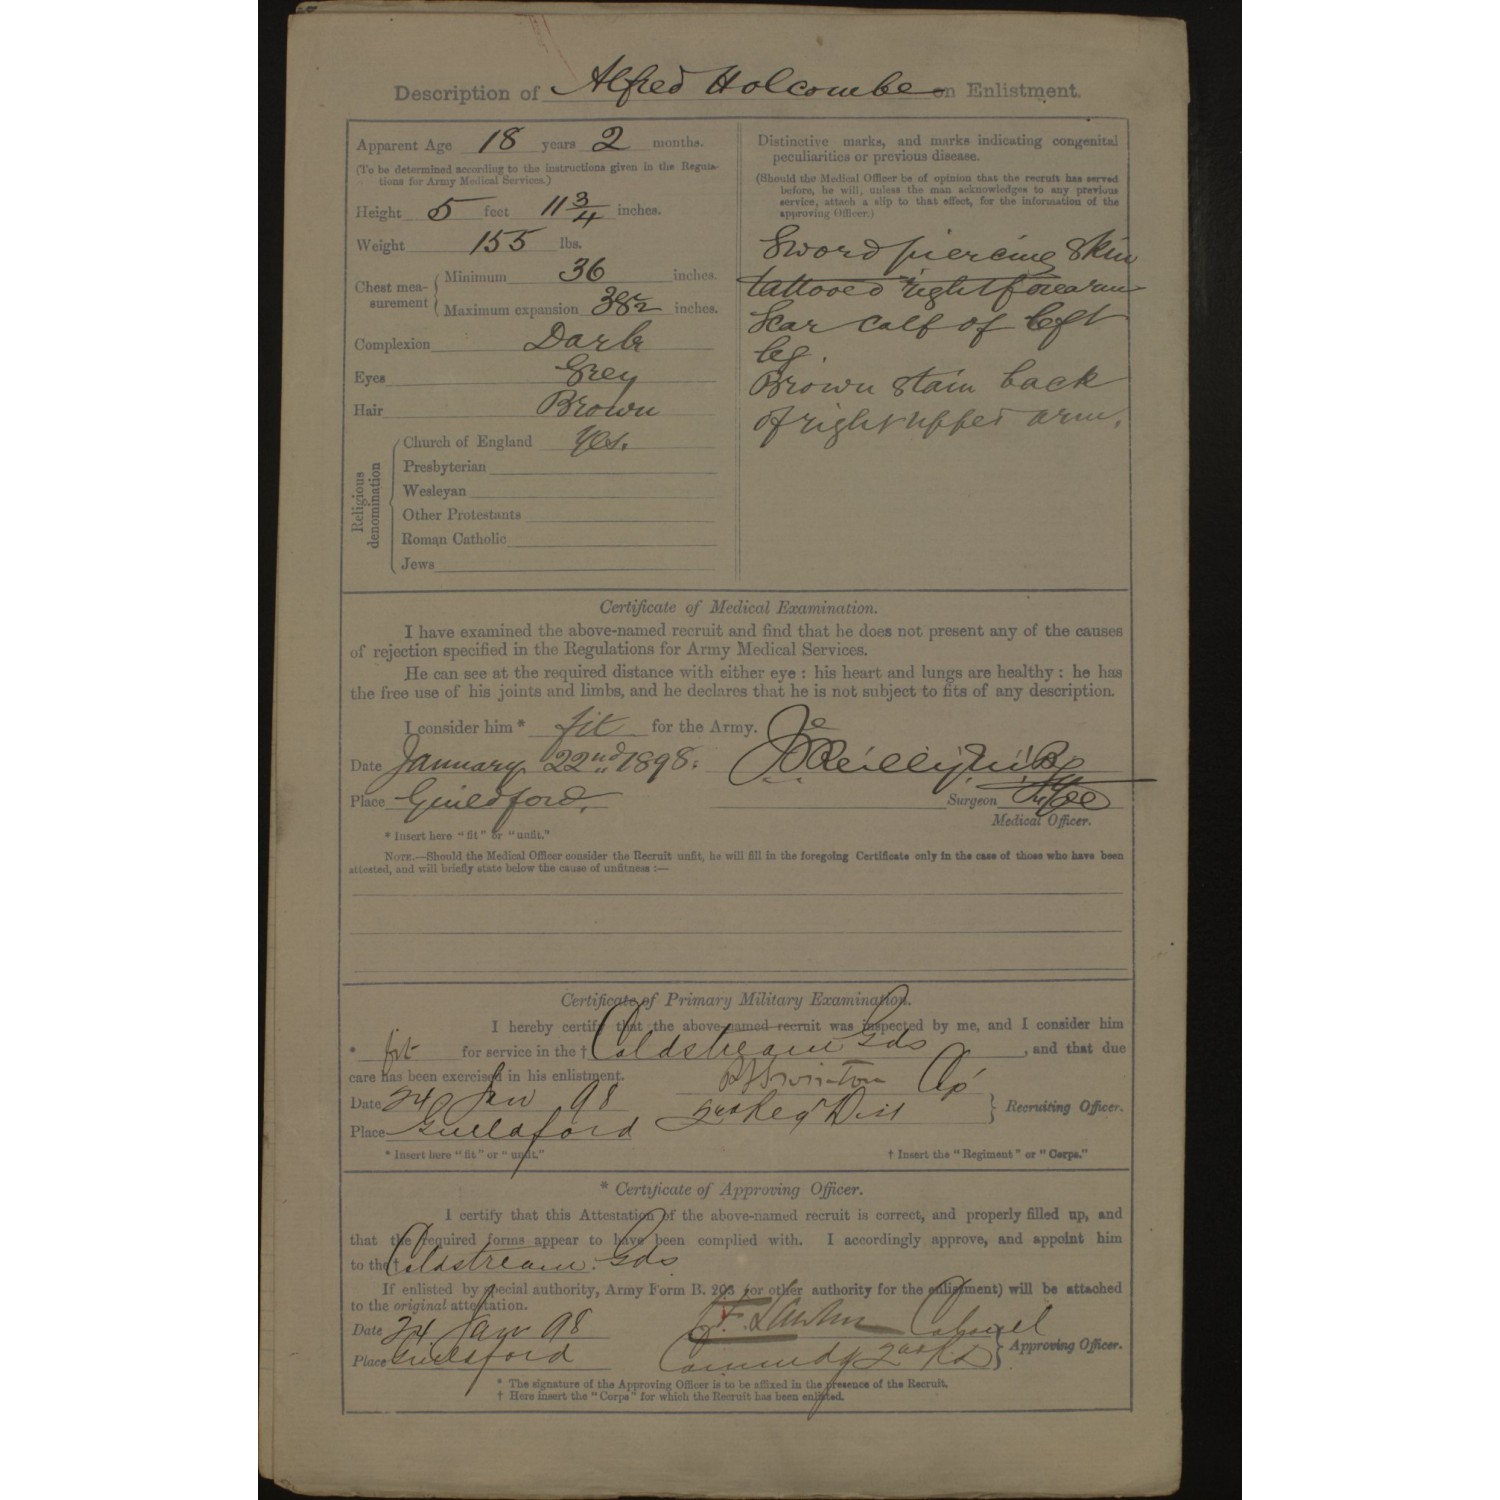 Description of Alfred Holcombe on Enlistment.
Apparent Age 18 years 2 months.
(To be determined according to the instructions given in the Regula-
tions for Army Medical Services.)
Height 5 feet 11 3/4 inches.
Weight 155 lbs.
Chest mea-
surement
Minimum 36 inches.
Maximum expansion 38 1/2 inches.
Complexion Dark
Eyes Grey
Hair Brown
Religious
denomination
Church of England Yes.
Presbyterian
Wesleyan
Other Protestants
Roman Catholic
Jews
Distinctive marks, and marks indicating congenital
peculiarities or previous disease.
(Should the Medical Officer be of opinion that the recruit has served
before, he will, unless the man acknowledges to any previous
service, attach a slip to that effect, for the information of the
approving Officer.)
Sword piercing skin
tattooed right forearm
Scar calf of left
leg.
Brown stain back
of right upper arm.
Certificate of Medical Examination.
I have examined the above-named recruit and find that he does not present any of the causes
of rejection specified in the Regulations for Army Medical Services.
He can see at the required distance with either eye : his heart and lungs are healthy : he has
the free use of his joints and limbs, and he declares that he is not subject to fits of any description.
I consider him * fit for the Army.
Date January 22nd 1898.
Place Guildford.
Surgeon
Medical Officer.
* Insert here "fit" or "unfit."
NOTE.—Should the Medical Officer consider the Recruit unfit, he will fill in the foregoing Certificate only in the case of those who have been
attested, and will briefly state below the cause of unfitness :—
Certificate of Primary Military Examination.
I hereby certify that the above-named recruit was inspected by me, and I consider him
* fit for service in the † Coldstream Gds, and that due
care has been exercised in his enlistment.
Date 24 Jan 98
Place Guildford
Recruiting Officer.
* Insert here "fit" or "unfit."
† Insert the "Regiment" or "Corps."
* Certificate of Approving Officer.
I certify that this Attestation of the above-named recruit is correct, and properly filled up, and
that the required forms appear to have been complied with. I accordingly approve, and appoint him
to the † Coldstream Gds
If enlisted by special authority, Army Form B. 203 (or other authority for the enlistment) will be attached
to the original attestation.
Date 24 Jan 98 Colonel
Place Guildford
Approving Officer.
* The signature of the Approving Officer is to be affixed in the presence of the Recruit.
† Here insert the "Corps" for which the Recruit has been enlisted.